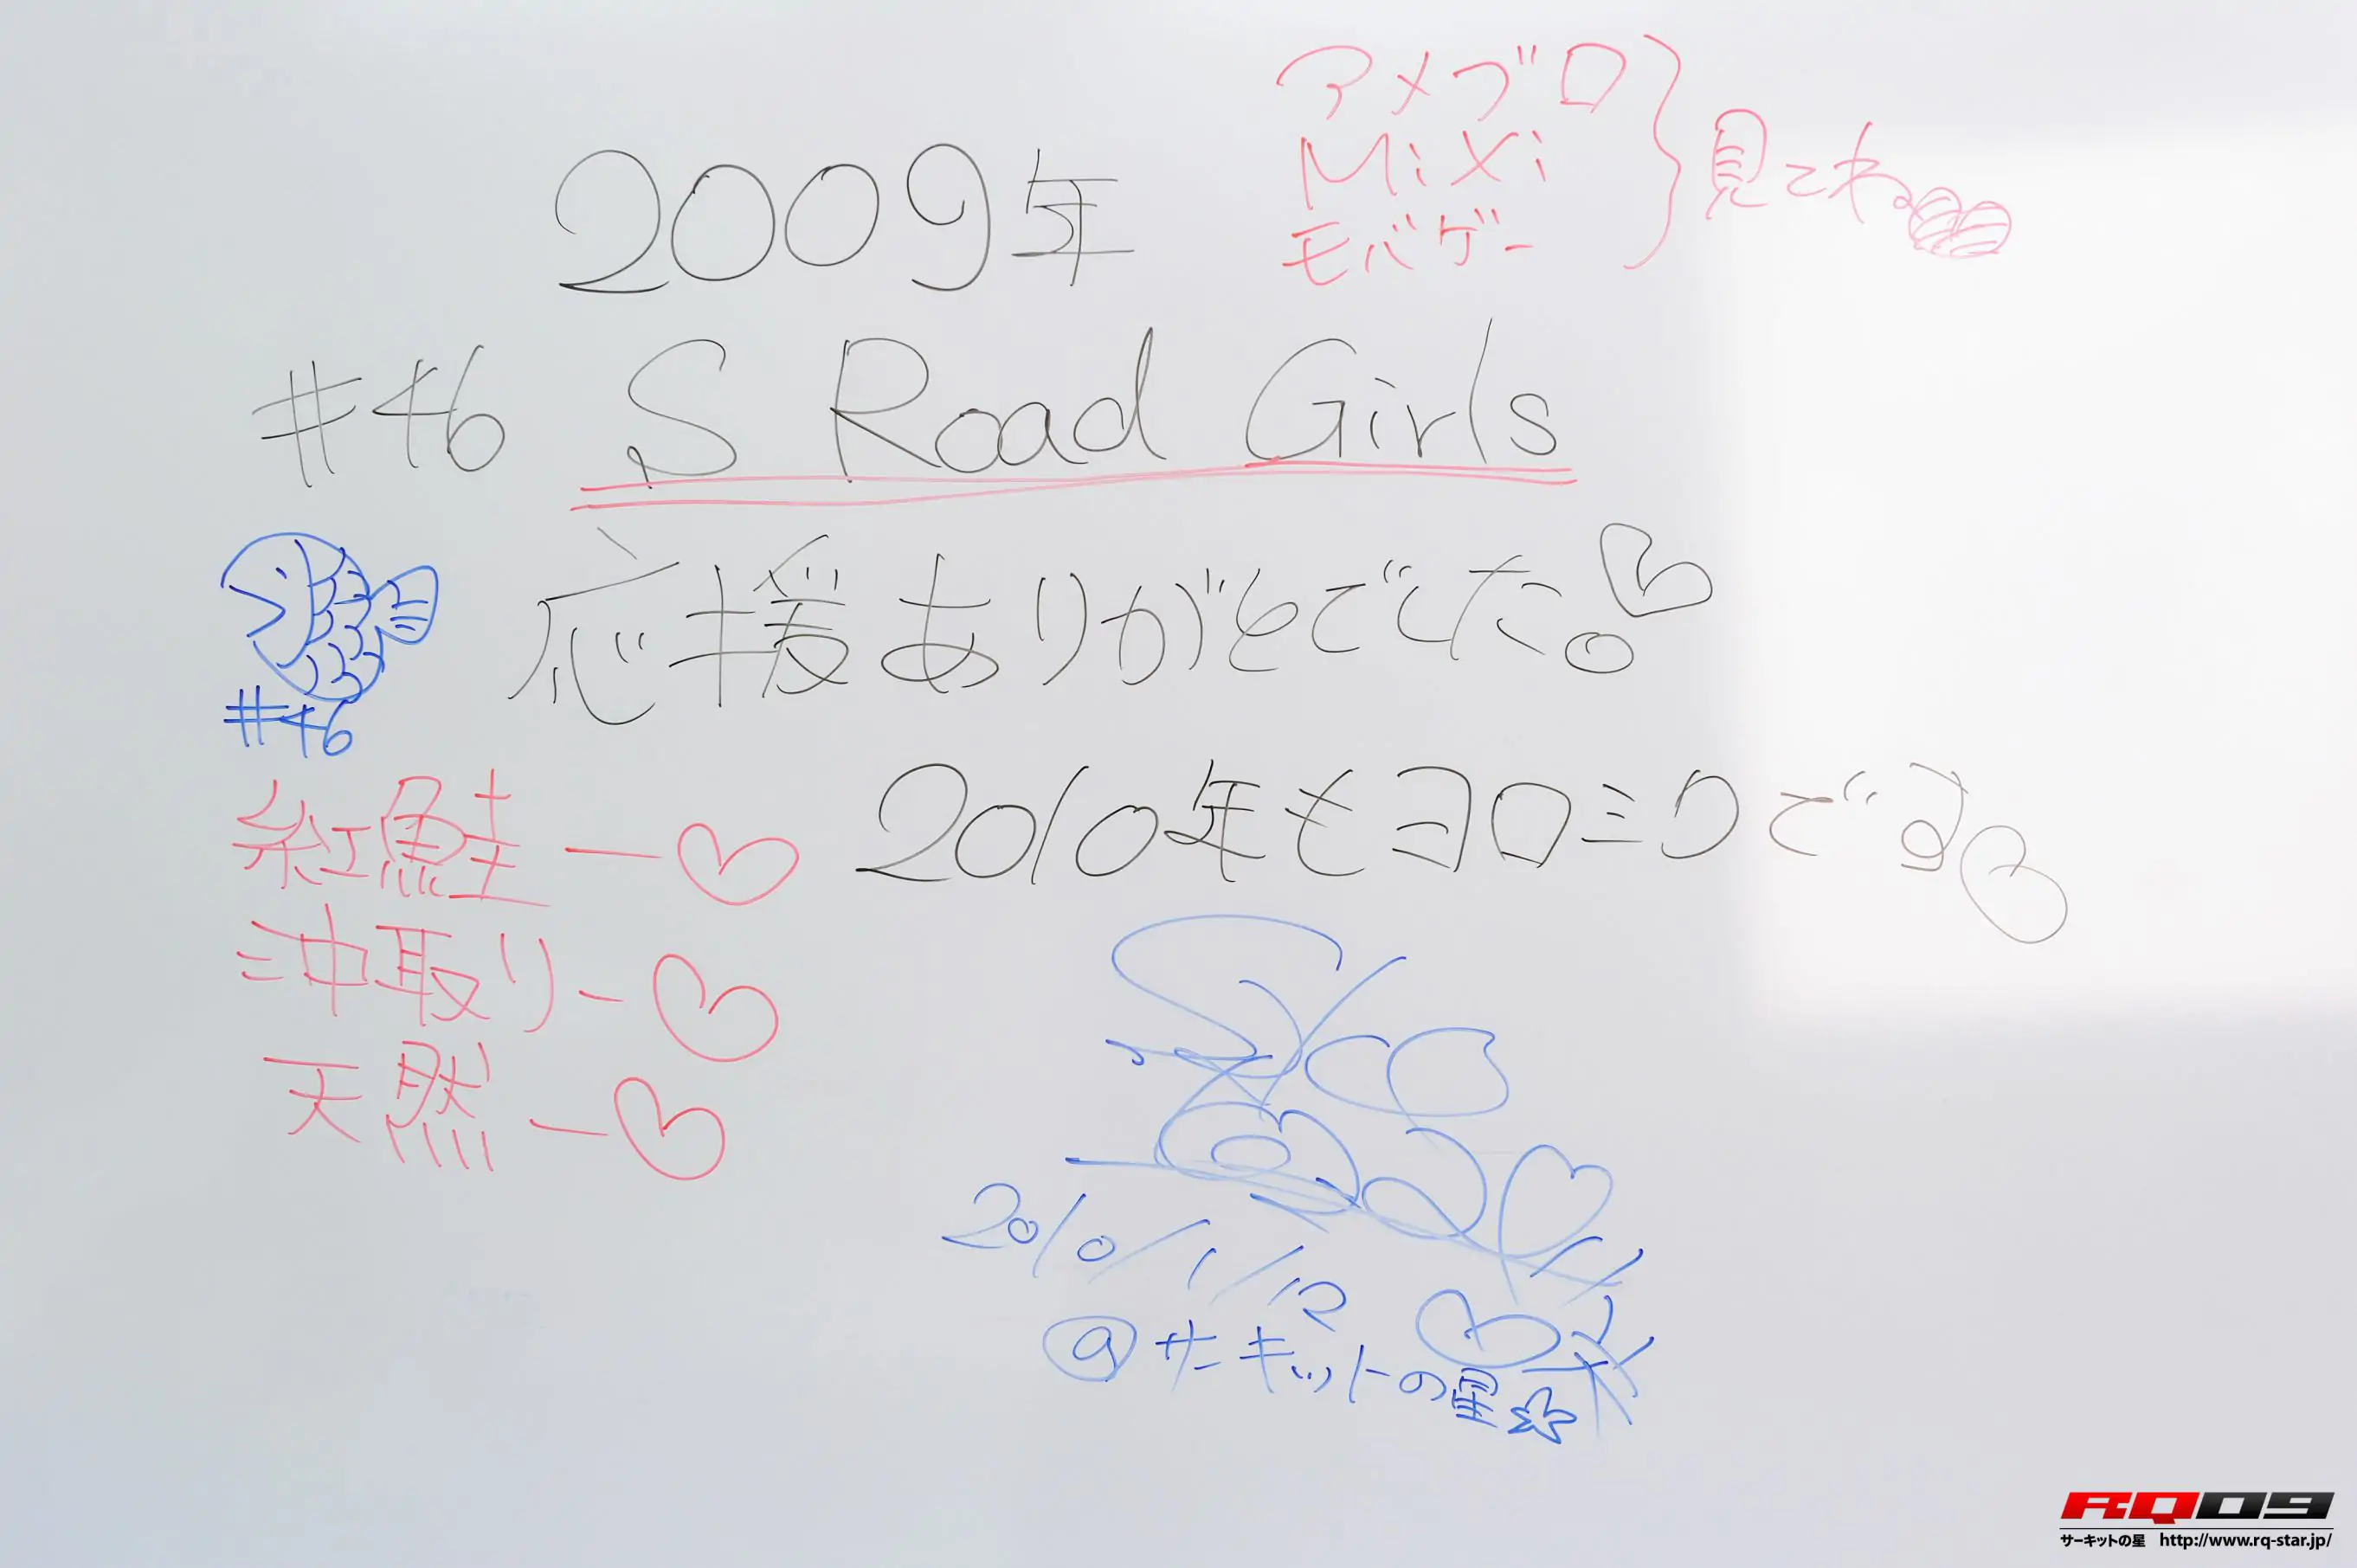 アメブロ
Mixi
モバゲー
見てね。
2009年
#46 S Road Girls
応援ありがとでした。
#46
2010年もヨロミクです
紅鮭ー
沖取りー
天然ー
2010/1/12
@サーキットの星☆
RQ09
サーキットの星 http://www.rq-star.jp/